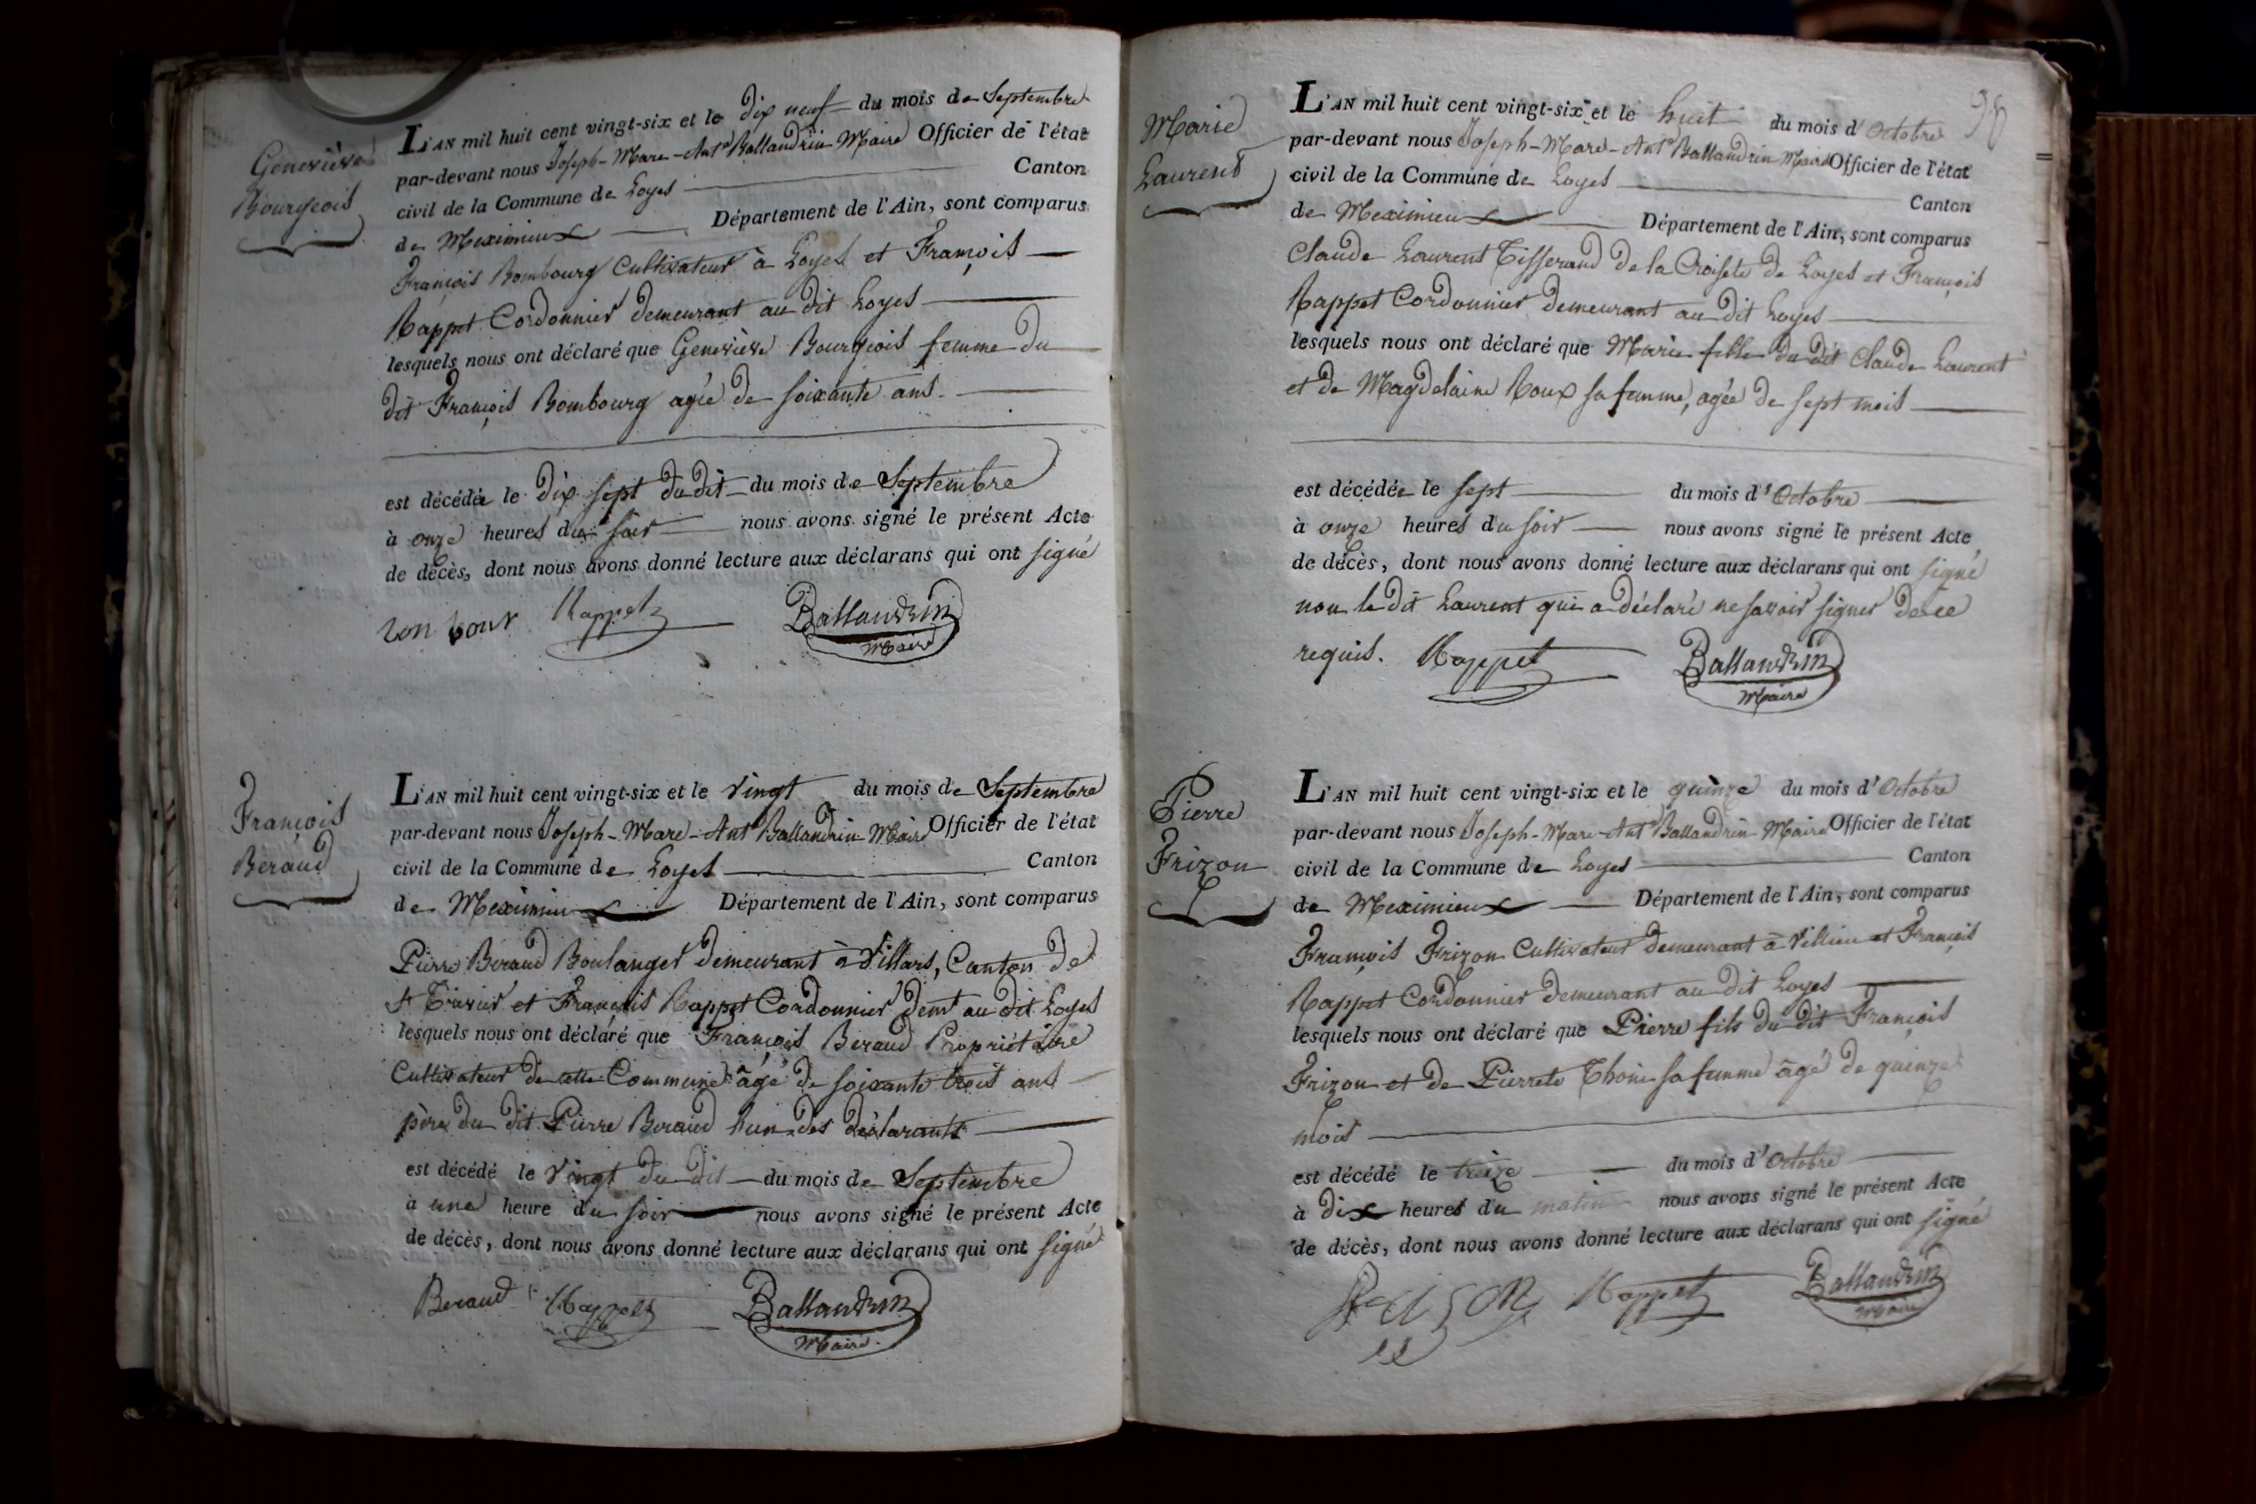 Geneviève
Bourgeois
L'AN mil huit cent vingt-six et le dix neuf du mois de Septembre
par-devant nous Joseph-Marc-Ant.e Ballandrin Maire Officier de l'état
civil de la Commune de Loyes Canton
de Meximieux Département de l'Ain, sont comparus
François Bombourg Cultivateur à Loyes et François
Rappet Cordonnier demeurant au dit Loyes
lesquels nous ont déclaré que Geneviève Bourgeois femme du
dit François Bombourg agée de soixante ans.
est décédée le dix sept du dit du mois de Septembre
à onze heures du soir nous avons signé le présent Acte
de décès, dont nous avons donné lecture aux déclarans qui ont signé
Rappet Ballandrin
Maire
François
Béraud
L'AN mil huit cent vingt-six et le vingt du mois de Septembre
par-devant nous Joseph-Marc-Ant.e Ballandrin Maire Officier de l'état
civil de la Commune de Loyes Canton
de Meximieux Département de l'Ain, sont comparus
Pierre Béraud Boulanger demeurant à Villars, Canton de
St Trivier et François Rappet Cordonnier demt au dit Loyes
lesquels nous ont déclaré que François Beraud Propriétaire
Cultivateur de cette Commune âgé de soixante trois ans
père du dit Pierre Beraud l'un des déclarants
est décédé le vingt du dit du mois de Septembre
à une heure du soir nous avons signé le présent Acte
de décès, dont nous avons donné lecture aux déclarans qui ont signé
Beraud Rappet Ballandrin
Maire.
98
Marie
Laurent
L'AN mil huit cent vingt-six et le huit du mois d'Octobre
par-devant nous Joseph-Marc-Ant.e Ballandrin Maire Officier de l'état
civil de la Commune de Loyes Canton
de Meximieux Département de l'Ain, sont comparus
Claude Laurent Tisserand de la Croisete de Loyes et François
Rappet Cordonnier demeurant au dit Loyes
lesquels nous ont déclaré que Marie fille du dit Claude Laurent
et de Magdelaine Roux sa femme, agée de sept mois
est décédée le sept du mois d'Octobre
à onze heures du soir nous avons signé le présent Acte
de décès, dont nous avons donné lecture aux déclarans qui ont signé
non le dit Laurent qui a déclaré ne savoir signer de ce
requis. Rappet Ballandrin
Maire
Pierre
Frizon
L'AN mil huit cent vingt-six et le quinze du mois d'Octobre
par-devant nous Joseph-Marc-Ant.e Ballandrin Maire Officier de l'état
civil de la Commune de Loyes Canton
de Meximieux Département de l'Ain, sont comparus
François Frizon Cultivateur demeurant à Villieu et François
Rappet Cordonnier demeurant au dit Loyes
lesquels nous ont déclaré que Pierre fils du dit François
Frizon et de Pierrete Thoin sa femme âgé de quinze
mois
est décédé le treize du mois d'Octobre
à dix heures du matin nous avons signé le présent Acte
de décès, dont nous avons donné lecture aux déclarans qui ont signé
Rappet Ballandrin
Maire